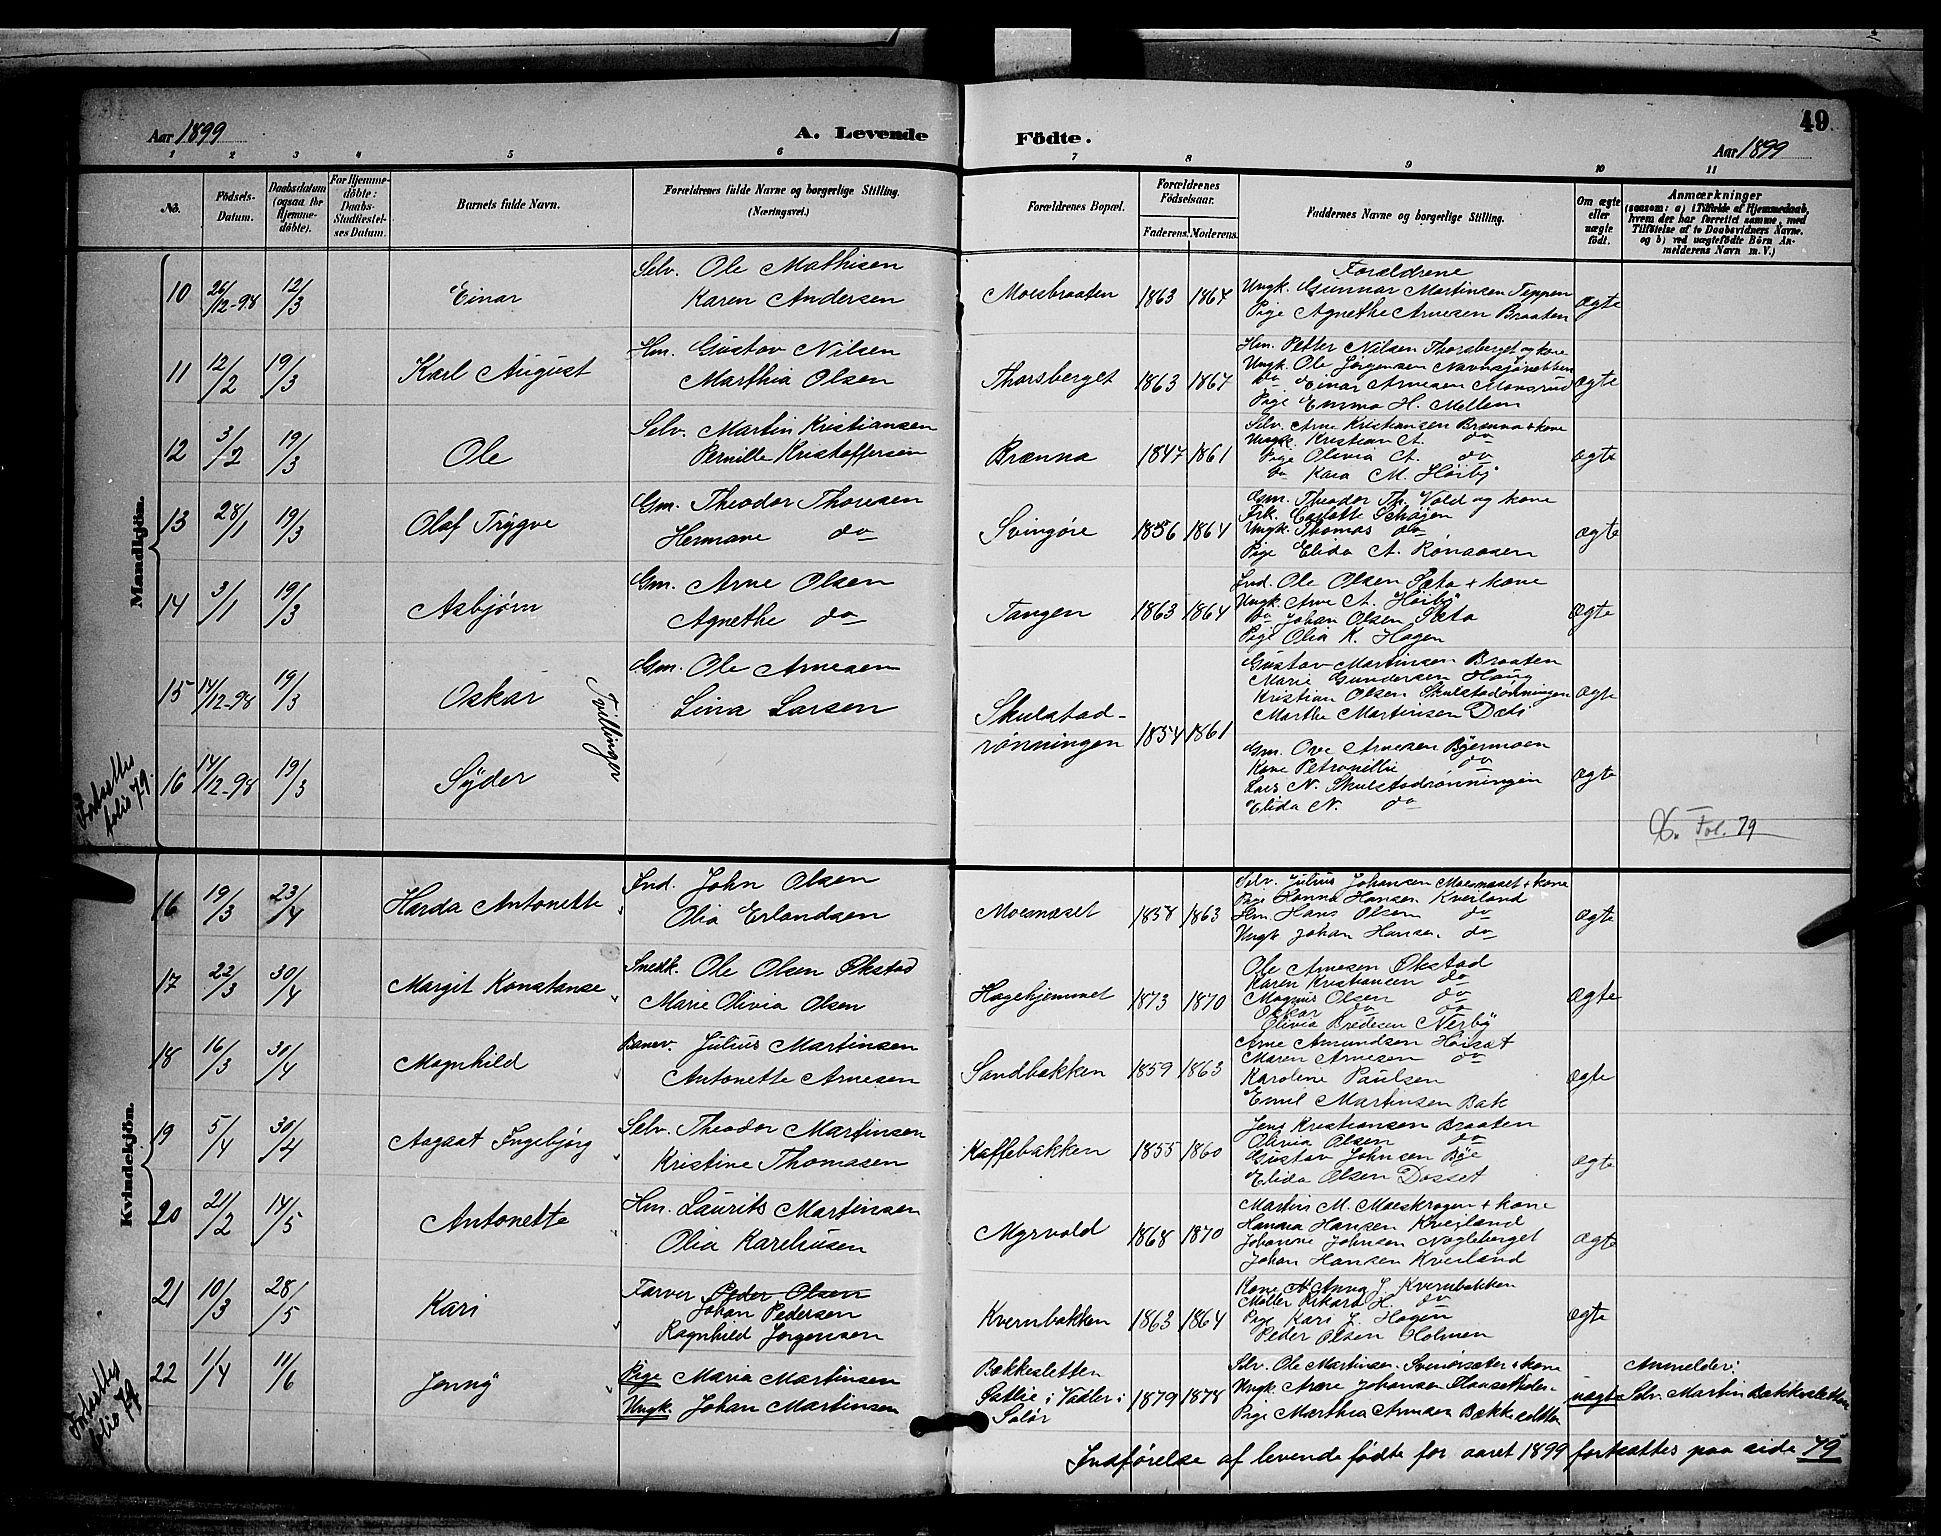 49
Aar 1899
A. Levende
Födte.
Aar 1899
1 2 3 4 5 6 7 8 9 10 11
No.
Födsels-
Datum.
Daabsdatum
(ogsaa for
Hjemme-
döbte).
For Hjemme-
döbte:
Daabs-
Stadfæstel-
ses Datum.
Barnets fulde Navn.
Forældrenes fulde Navne og borgerlige Stilling.
(Næringsvei.)
Forældrenes Bopæl.
Forældrenes
Födselsaar.
Faderens. Moderens.
Faddernes Navne og borgerlige Stilling.
Om ægte
eller
uægte
födt.
Anmærkninger
(saasom: a) i Tilfælde af Hjemmedaab,
hvem der har forrettet samme, med
Tilföielse af to Daabsvidners Navne.
og b) ved uægtefödte Börn An-
melderens Navn m. V.)
Mandkjön.
10 26/12-98 12/3 Einar
Selv. Ole Mathisen
Karen Andersen
Moesbraaten 1863 1864
Forældrene
Ungk. Gunnar Martinsen Teppen
Pige Agnethe Arnesen Braaten
ægte
11 12/2 19/3 Karl August
Hm. Gustav Nilsen
Marthia Olsen
Thorsberget 1863 1864
Hm. Petter Nilsen Thorsberget og kone
Ungk. Ole Jørgensen
Do Einar Arnesen Monsrud
Pige Emma H. Mellem
ægte
12 3/2 19/3 Ole
Selv. Martin Kristiansen
Pernille Kristoffersen
Brænna 1847 1861
Selv. Arne Kristiansen Brænna + kone
Ungk. Kristian A. do
Pige Olivia A. do
Do Kaia M. Høiby
ægte
13 28/1 19/3 Olaf Trygve
Gm. Theodor Thoresen
Hermane do
Svingøre 1856 1864
Gm. Theodor Th. Vold og kone
Frk. Carlotte Schøjen
Ungk. Thomas do
Pige Elida A. Rønaasen
ægte
14 3/1 19/3 Asbjørn
Gm. Arne Olsen
Agnethe do
Tangen 1863 1864
Ind. Ole Olsen Sæta + kone
Ungk. Arne A. Høiby
Do Johan Olsen Sæta
Pige Olia K. Hagen
ægte
15 14/12-98 19/3 Oskar
Tvillinger
Gm. Ole Arnesen
Lina Larsen
Skulstad-
rønningen 1854 1861
Gustav Martinsen Braaten
Marie Gundersen Haug
Kristian Olsen Skulstadrønningen
Marthe Martinsen
ægte
16 14/12-98 19/3 Syder
Gm. Ove Arnesen Bjermoen
Kone Petronillie do
Lars N. Skulstadrønningen
Elida N. do
ægte
Fortsættes
folio 79.
Fol. 79
Kvindekjön.
16 19/3 23/4 Harda Antonette
Ind. John Olsen
Olia Erlandsen
Moesnæset 1858 1863
Selv. Julius Johansen Moesnæset + kone
Pige Hanna Hansen Kverland
Hm. Hans Olsen do
Ungk Johan Hansen do
ægte
17 22/3 30/4 Margit Konstanse
Snedk. Ole Olsen Økstad
Marie Olivia Olsen
Hagehjemmet 1873 1870
Ole Arnesen Økstad
Karen Kristiansen do
Magnus Olsen do
Oskar do do
Olivia Bredesen Nerby
ægte
18 16/3 30/4 Magnhild
Banev. Julius Martinsen
Antonette Arnesen
Sandbakken 1859 1863
Arne Amundsen Høisæt
Maren Arnesen do
Karoline Paulsen
Emil Martinsen Bak
ægte
19 5/4 30/4 Aagaat Ingebjørg
Selv. Theodor Martinsen
Kristine Thomasen
Kaffebakken 1855 1860
Jens Kristiansen Braaten
Olivia Olsen do
Gustav Johnsen Bye
Elida Olsen Dosset
ægte
20 21/2 14/5 Antonette
Hm. Laurits Martinsen
Olia Karelüsen
Myrvold 1868 1870
Martin M. Moeskrogen + kone
Hanna Hansen Kverland
Johanne Johnsen Nagleberget
Johan Hansen Kverland
ægte
21 10/3 28/5 Kari
Farver Peder Olsen
Johan Pedersen
Ragnhild Jørgensen
Kvernbakken 1863 1864
Kone Anna J. Kvernbakken
Møller Rikard H. do
Pige Kari J. Hagen
Peder Olsen Holmen
ægte
22 1/4 11/6 Jenny
Pige Maria Martinsen
Ungk. Johan Martinsen
Bækkesletten
Sætlie i Vaaler i
Solør 1879 1878
Selv. Ole Martinsen Svinørsæter + kone
Ungk Arne Johansen
Pige Marthia Arnesen Bækkesletten
uægte
Anmelder:
Selv. Martin Bækkesletten
Fortsættes
folio 79
Indførelse af levende fødte for aaret 1899 fortsættes paa side 79